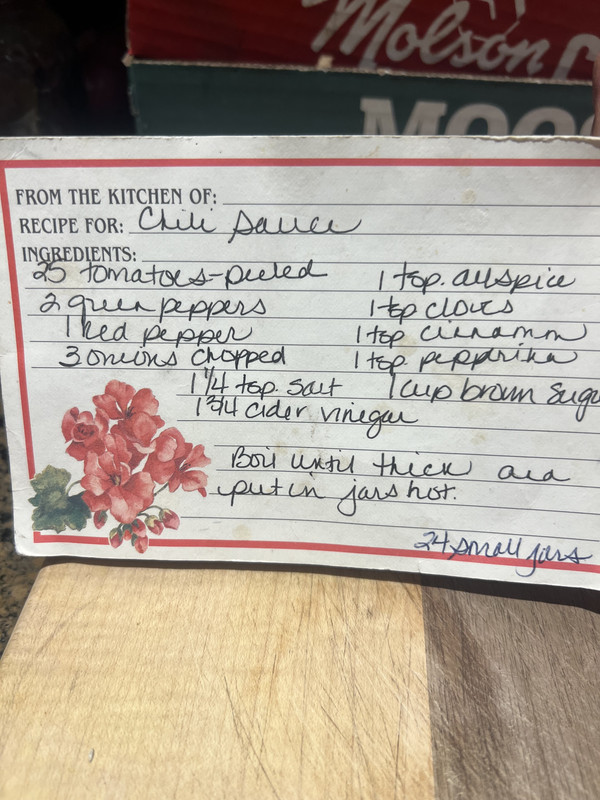 Molson
MOOS
FROM THE KITCHEN OF:
RECIPE FOR: Chili Sauce
INGREDIENTS:
25 tomatoes-peeled 1 tsp. allspice
2 green peppers 1 tsp cloves
1 Red pepper 1 tsp cinnamon
3 onions chopped 1 tsp. papprika
1 1/4 tsp. salt 1 cup brown Suga
1 3/4 cider vinegar
Boil until thick and
put in jars hot.
24 small jars